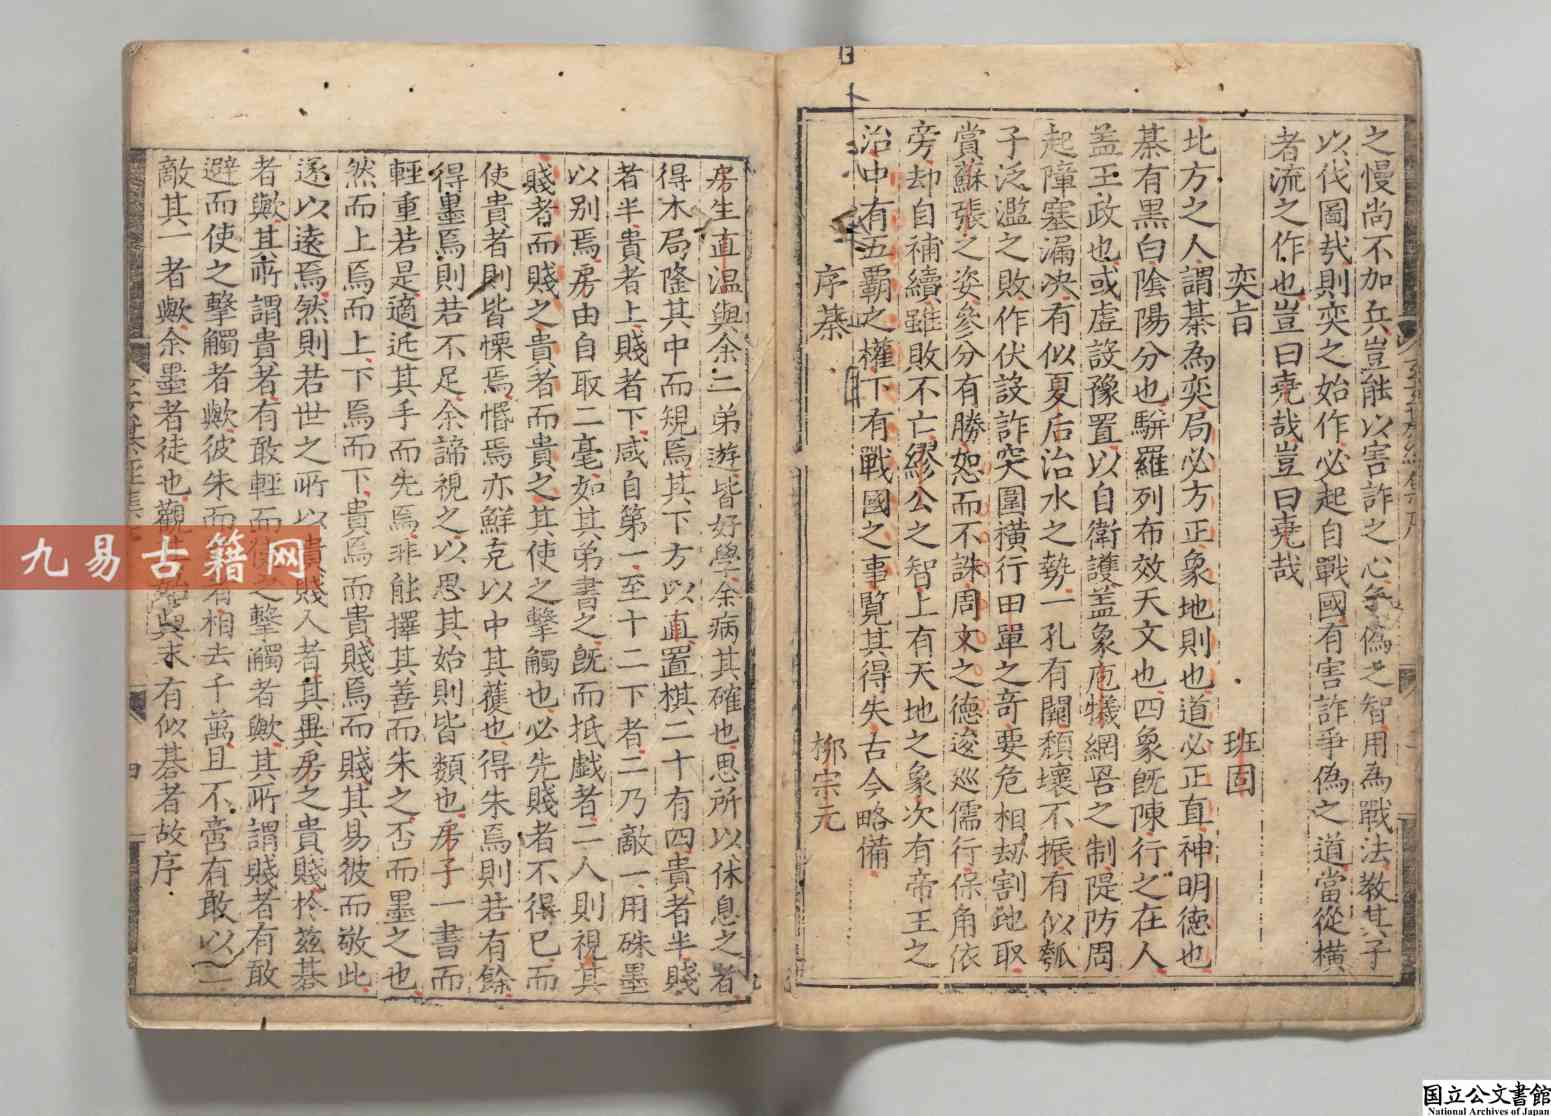 之慢尚不加兵豈能以害詐之心爭偽之智用為戰法教其子
以伐圖㢤則奕之始作必起自戰國有害詐爭偽之道當從橫
者流之作也豈曰堯哉豈曰堯哉
奕旨 班固
北方之人謂棊為奕局必方正象地則也道必正直神明德也
棊有黑白陰陽分也駢羅列布效天文也四象既陳行之在人
盖王政也或虛設豫置以自衛護盖象庖犧網罟之制隄防周
起障塞漏决有似夏后治水之勢一孔有闕頹壞不振有似瓠
子泛濫之敗作伏設詐突圍橫行田單之奇要危相劫割地取
賞蘇張之姿參分有勝恕而不誅周文之德逡巡儒行保角依
旁却自補續雖敗不亡繆公之智上有天地之象次有帝王之
治中有五霸之權下有戰國之事覽其得失古今略備
序棊 柳宗元
房生直温與余二弟遊皆好學余病其確也思所以休息之者
得木局隆其中而規焉其下方以直置棋二十有四貴者半賤
者半貴者上賤者下咸自第一至十二下者二乃敵一用硃墨
以别焉房由自取二毫如其弟書之既而抵戯者二人則視其
賤者而賤之貴者而貴之其使之擊觸也必先賤者不得已而
使貴者則皆慄焉惛焉亦鮮克以中其獲也得朱焉則若有餘
得墨焉則若不足余諦視之以思其始則皆類也房子一書而
輕重若是適近其手而先焉非能擇其善而朱之否而墨之也
然而上焉而上下焉而下貴焉而貴賤焉而賤其易彼而敬此
遂以遠焉然則若世之所以貴賤人者其異房之貴賤於兹棊
者歟其所謂貴者有敢輕而使之擊觸者歟其所謂賤者有敢
避而使之擊觸者歟彼朱而有相去千萬且不啻有敢以二
敵其一者歟余墨者徒也觀其始與末有似碁者故序
四
九易古籍网
国立公文書館
National Archives of Japan